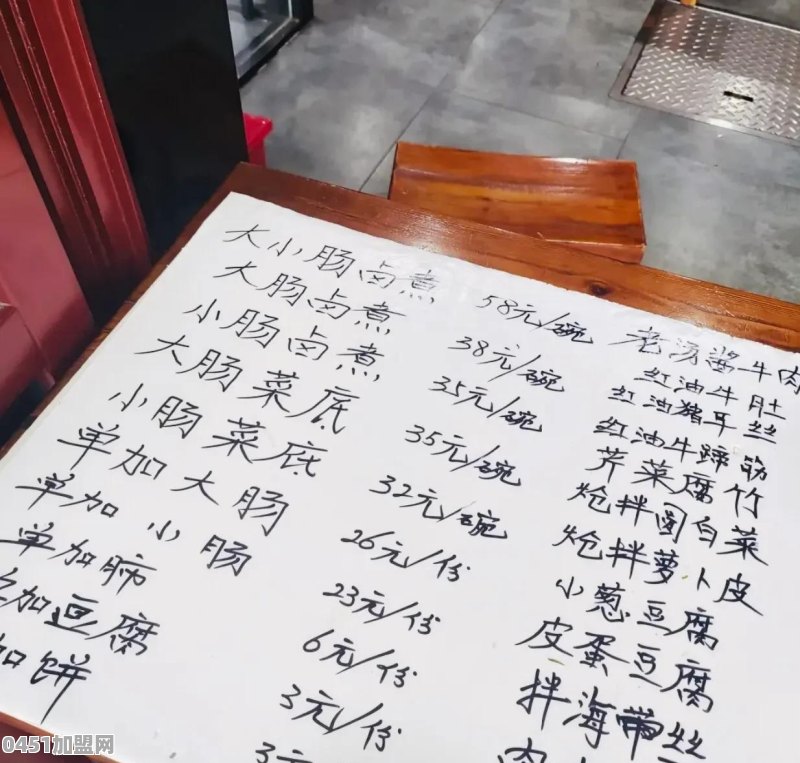 大小肠卤煮 58元/碗
大肠卤煮 38元/碗
小肠卤煮 35元/碗
大肠菜底 35元/碗
小肠菜底 32元/碗
单加大肠 26元/份
单加小肠 23元/份
单加肺 6元/份
单加豆腐 3元/份
加饼 3元
老汤酱牛肉
红油牛肚
红油猪耳丝
红油牛蹄筋
芹菜腐竹
炝拌圆白菜
炝拌萝卜皮
小葱豆腐
皮蛋豆腐
拌海带丝
肉
0451加盟网